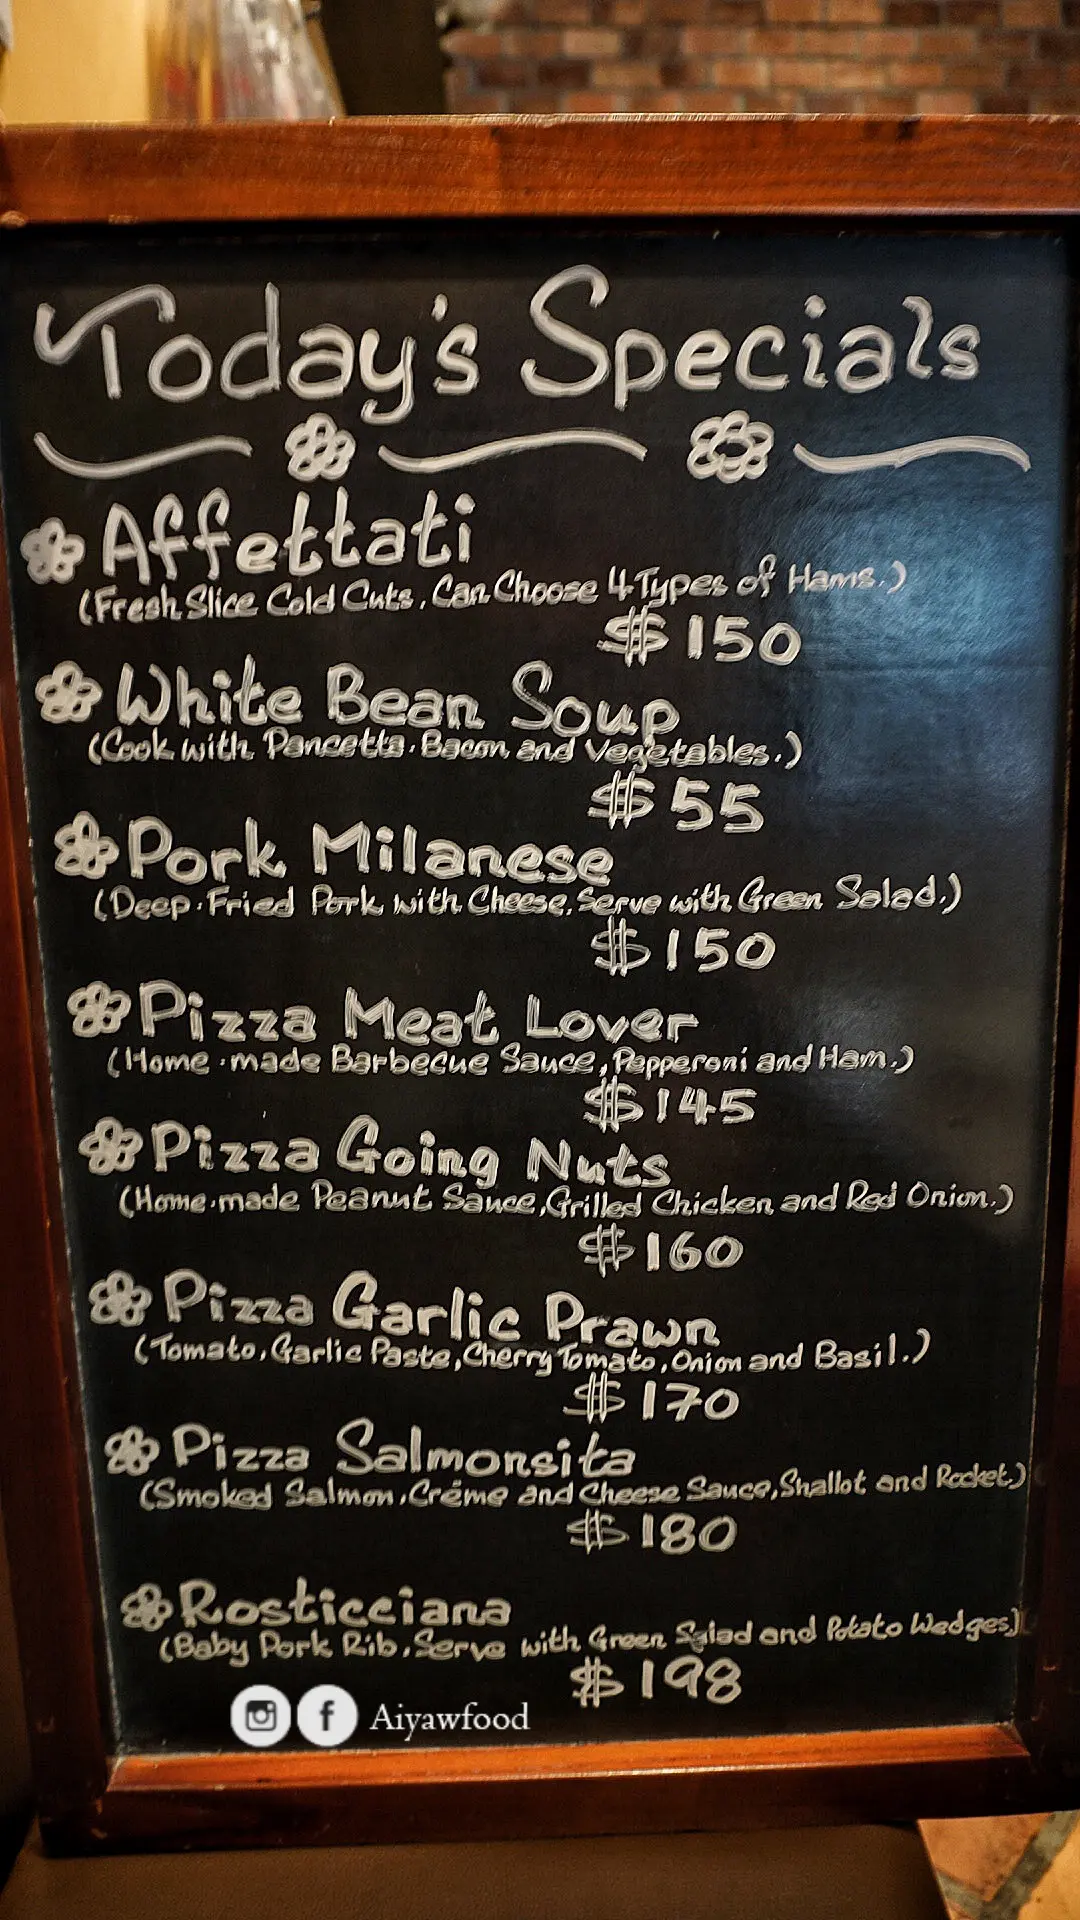 Today's Specials
Affettati
(Fresh Slice Cold Cuts. Can Choose 4 Types of Hams.)
$150
White Bean Soup
(Cook with Pancetta. Bacon and Vegetables.)
$55
Pork Milanese
(Deep-Fried Pork with Cheese, Serve with Green Salad.)
$150
Pizza Meat Lover
(Home-made Barbecue Sauce, Pepperoni and Ham.)
$145
Pizza Going Nuts
(Home-made Peanut Sauce, Grilled Chicken and Red Onion.)
$160
Pizza Garlic Prawn
(Tomato, Garlic Paste, Cherry Tomato, Onion and Basil.)
$170
Pizza Salmonsita
(Smoked Salmon, Créme and Cheese Sauce, Shallot and Rocket)
$180
Rosticciana
(Baby Pork Rib, Serve with Green Salad and Potato Wedges)
$198
Aiyawfood